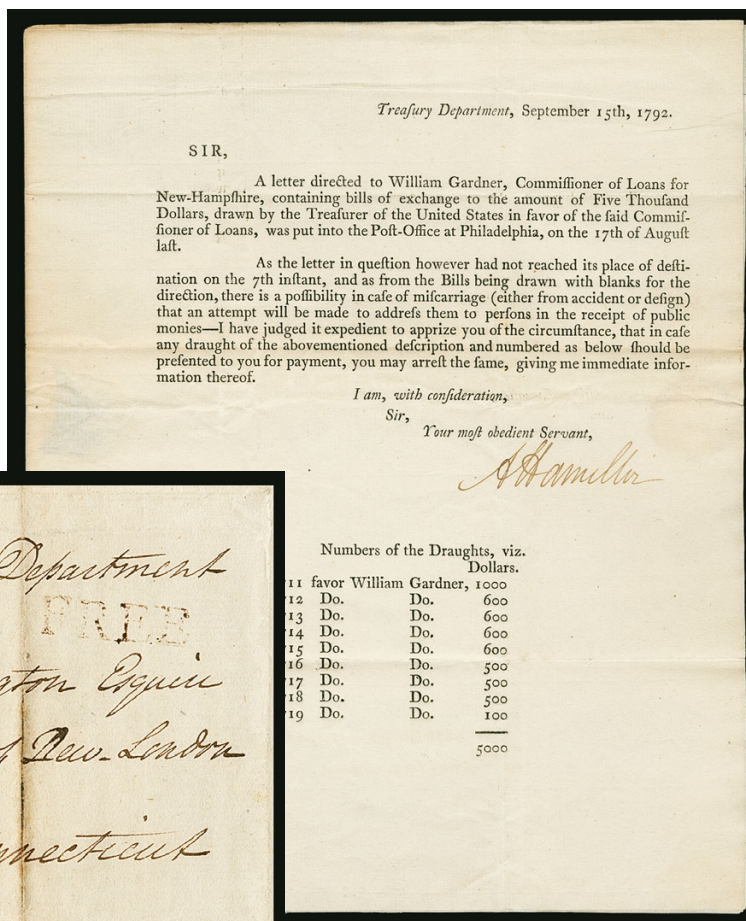 Treaſury Department, September 15th, 1792.
SIR,
A letter directed to William Gardner, Commiſſioner of Loans for
New-Hampſhire, containing bills of exchange to the amount of Five Thouſand
Dollars, drawn by the Treaſurer of the United States in favor of the ſaid Commiſ-
ſioner of Loans, was put into the Poſt-Office at Philadelphia, on the 17th of Auguſt
laſt.
As the letter in queſtion however had not reached its place of deſti-
nation on the 7th inſtant, and as from the Bills being drawn with blanks for the
direction, there is a poſſibility in caſe of miſcarriage (either from accident or deſign)
that an attempt will be made to addreſs them to perſons in the receipt of public
monies—I have judged it expedient to apprize you of the circumſtance, that in caſe
any draught of the abovementioned deſcription and numbered as below ſhould be
preſented to you for payment, you may arreſt the ſame, giving me immediate infor-
mation thereof.
I am, with conſideration,
Sir,
Your moſt obedient Servant,
A Hamilton
Numbers of the Draughts, viz.
Dollars.
11 favor William Gardner, 1000
12 Do. Do. 600
13 Do. Do. 600
14 Do. Do. 600
15 Do. Do. 600
16 Do. Do. 500
17 Do. Do. 500
18 Do. Do. 500
19 Do. Do. 100
5000
Department
FREE
gton Esquire
New-London
necticut